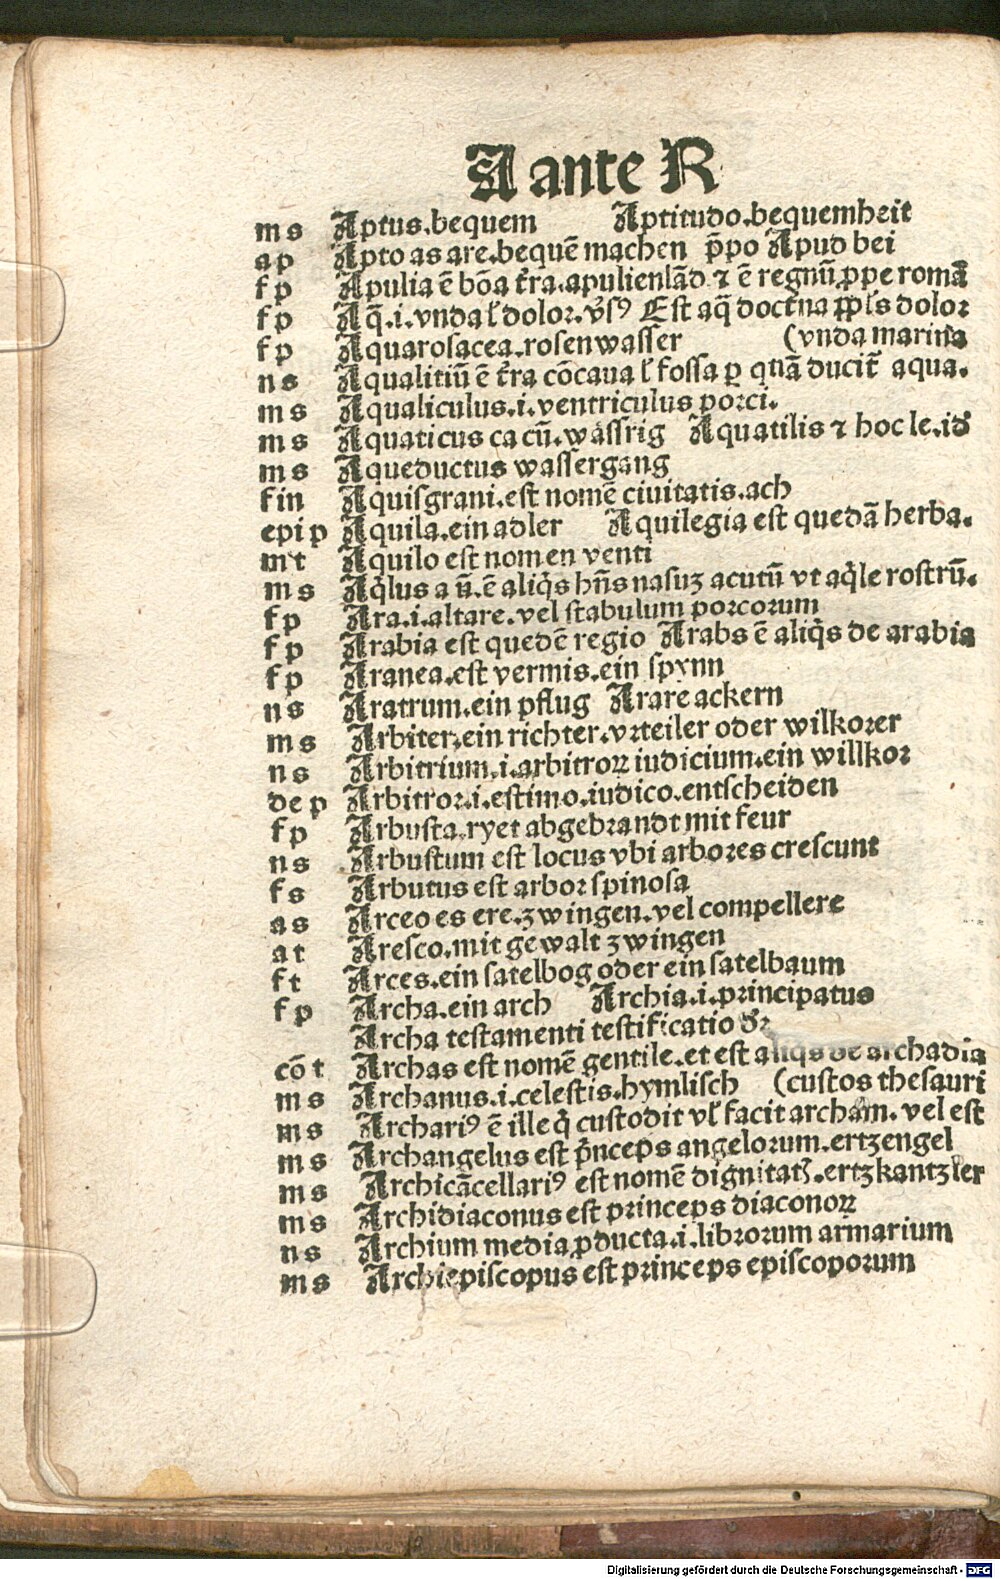 A ante R
m s Aptus.bequem Aptitudo.bequemheit
a p Apto as are.bequē machen p̄po Apud bei
f p Apulia ē bōa t̄ra.apulienlād ⁊ ē regnū ꝓpe romā
f p Aq̄.i.vnda ł dolor.v̄sꝰ Est aq̄ doctrina ꝓpl̄s dolor
f p Aquarosacea.rosenwasser (vnda marina
n s Aqualitiū ē t̄ra cōcaua ł fossa ꝑ quā ducit̄ aqua.
m s Aqualiculus.i.ventriculus porci.
m s Aquaticus ca cū.wassrig Aquatilis ⁊ hoc le.id̄
m s Aqueductus wassergang
f in Aquisgrani.est nomē ciuitatis.ach
epi p Aquila.ein adler Aquilegia est quedā herba.
m t Aquilo est nomen venti
m s Aq̇lus a ū.ē aliq̇s hn̄s nasuʒ acutū vt aq̇le rostrū.
f p Ara.i.altare.vel stabulum porcorum
f p Arabia est quedē regio Arabs ē aliq̇s de arabia
f p Aranea.est vermis.ein spynn
n s Aratrum.ein pflug Arare ackern
m s Arbiter.ein richter.vrteiler oder wilkorer
n s Arbitrium.i.arbitroꝝ iudicium.ein willkor
de p Arbitror.i.estimo.iudico.entscheiden
f p Arbusta.ryet abgebrandt mit feur
n s Arbustum est locus vbi arbores crescunt
f s Arbutus est arbor spinosa
a s Arceo es ere.zwingen.vel compellere
a t Aresco.mit gewalt zwingen
f t Arces.ein satelbog oder ein satelbaum
f p Archa.ein arch Archia.i.principatus
Archa testamenti testificatio
cō t Archas est nomē gentile.et est aliq̇s de archadia
m s Archanus.i.celestis.hymlisch (custos thesauri
m s Archariꝰ ē ille q̇ custodit vł facit archam.vel est
m s Archangelus est p̄nceps angelorum.ertzengel
m s Archicācellariꝰ est nomē dignitatꝭ.ertzkantzler
m s Archidiaconus est princeps diaconoꝝ
n s Archium media ꝓducta.i.librorum armarium
m s Archiepiscopus est princeps episcoporum
Digitalisierung gefördert durch die Deutsche Forschungsgemeinschaft - DFG